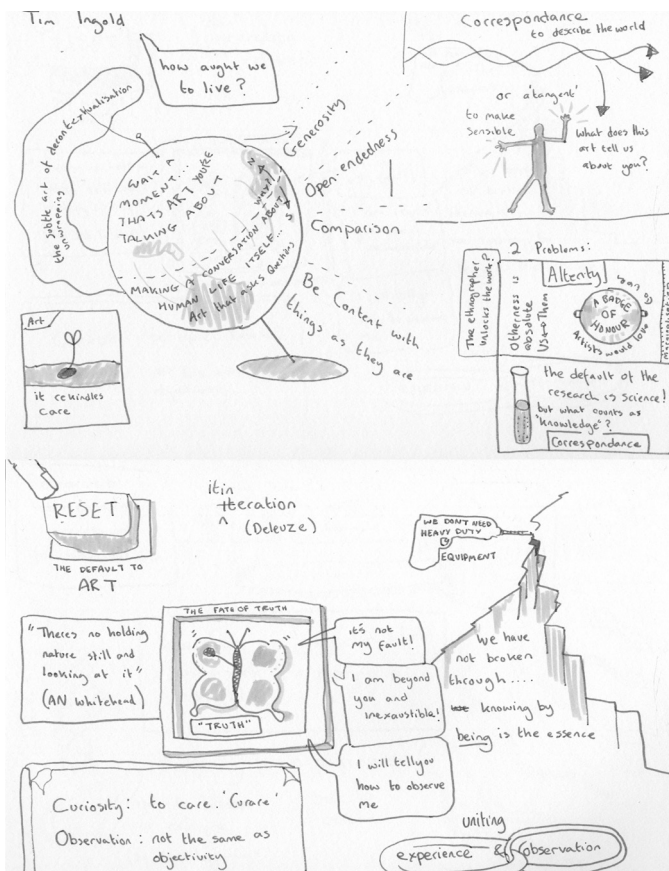 Tim Ingold
how aught we
to live?
the subtle art of decontextualisation
unwrapping
WAIT A
MOMENT...
THATS ART YOU'RE
TALKING ABOUT
WHY?!
MAKING A CONVERSATION ABOUT
HUMAN LIFE ITSELF...
Art that asks Questions
Generosity
Open-endedness
Comparison
Be Content with
things as they
are
Art
it rekindles
care
Correspondance
to describe the world
or a 'tangent'
to make
sensible
What does this
art tell us
about you?
2 Problems:
The ethnographer
unlocks the work?
Otherness is
absolute
Us↔Them
Alterity
A BADGE
OF
HONOUR
Artists would love
the default of the
research is science!
but what counts as
"knowledge"?
Correspondance
RESET
THE DEFAULT TO
ART
itin
Iteration
(Deleuze)
WE DON'T NEED
HEAVY DUTY
EQUIPMENT
We have
not broken
through....
we knowing by
being is the essence
"Theres no holding
nature still and
looking at it"
(AN Whitehead)
THE FATE OF TRUTH
"TRUTH"
it's not
my fault!
I am beyond
you and
inexaustible!
I will tell you
how to observe
me
Curiosity: to care. 'Curare'
Observation: not the same as
objectivity
uniting
experience & observation